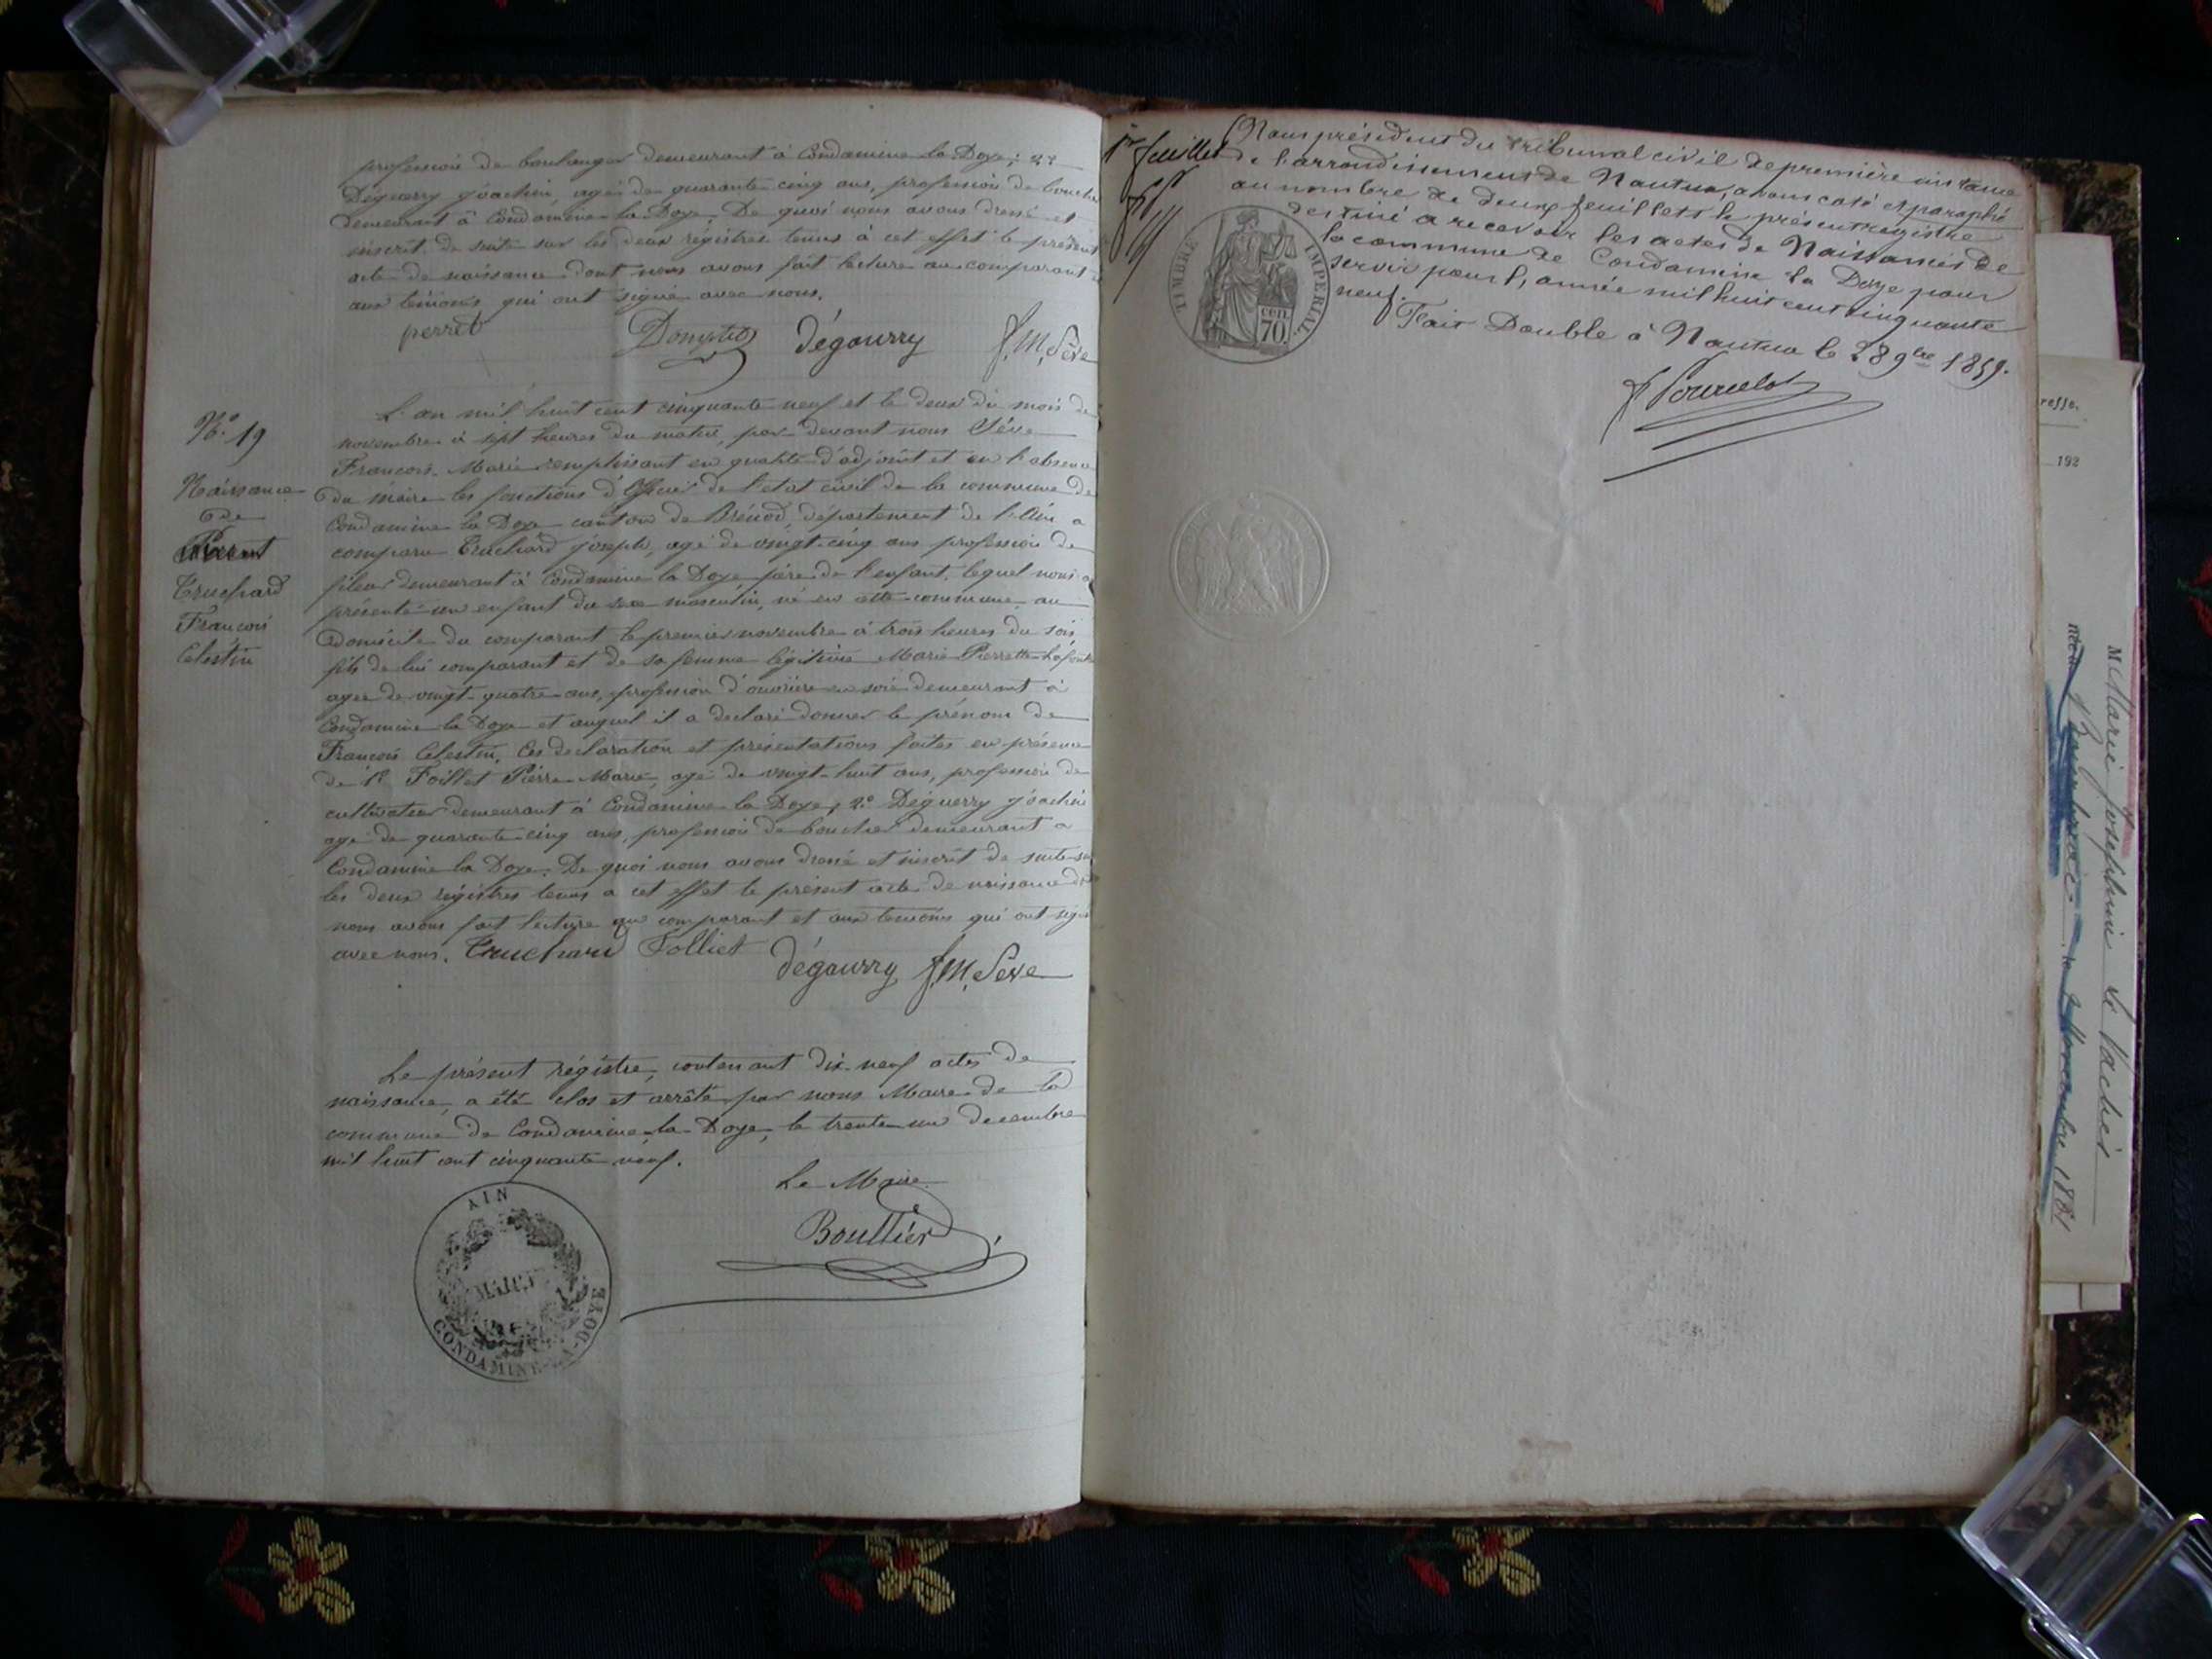 profession de boulanger demeurant à Condamine la Doye; 2°
Déguerry Joachim, agé de quarante cinq ans, profession de boucher
demeurant à Condamine la Doye. De quoi nous avons dressé et
inscrit de suite sur les deux régistres tenus à cet effet le présent
acte de naissance dont nous avons fait lecture au comparant et
aux temoins qui ont signé avec nous.
perret Dégourry f. M, Sève
N°. 19
Naissance
de
Truchard
Francois
Celestin
L'an mil huit cent cinquante neuf et le deux du mois de
novembre à sept heures du matin, par devant nous Sève
Francois Marie remplissant en qualité d'adjoint et en l'absence
du maire les fonctions d'officier de l'etat civil de la commune de
Condamine la Doye canton de Brénod, département de l'Ain a
comparu Truchard joseph, agé de vingt-cinq ans profession de
fileur demeurant à Condamine la Doye, père de l'enfant, lequel nous a
présenté un enfant du sexe masculin, né en cette commune au
domicile du comparant le premier novembre à trois heures du soir,
fils de lui comparant et de sa femme légitime Marie Pierrette
agée de vingt-quatre ans, profession d'ouvrière en soie demeurant à
Condamine la Doye et auquel il a declaré donner le prénom de
Francois Celestin. Ces declaration et présentations faites en présence
de 1° Folliet Pierre Marie, agé de vingt-huit ans, profession de
cultivateur demeurant à Condamine la Doye; 2° Déguerry Joachin
agé de quarante-cinq ans, profession de boucher demeurant a
Condamine la Doye. De quoi nous avons dressé et inscrit de suite sur
les deux régistres tenus a cet effet le présent acte de naissance dt
nous avons fait lecture au comparant et aux temoins qui ont signé
avec nous. Truchard Folliet Dégourry f. M, Seve
Le présent régistre, contenant dix-neuf actes de
naissance, a été clos et arrêté par nous Maire de la
commune de Condamine-la-Doye, le trente-un decembre
mil huit cent cinquante neuf.
Le Maire
Boullier
AIN
MAIRIE
CONDAMINE-LA-DOYE
1er feuillet
Nous président du tribunal civil de première instance
de l'arrondissement de Nantua, avons coté et paraphé
au nombre de deux feuillets le présent registre
destiné a recevoir les actes de Naissances de
la commune de Condamine la Doye pour
servir pour l'année mil huit cent cinquante
neuf.
Fait Double à Nantua le 28 9bre 1859.
TIMBRE IMPERIAL
COU.
70.
resse.
192
M Marie joséphine
née à
le 2 Novembre 1881